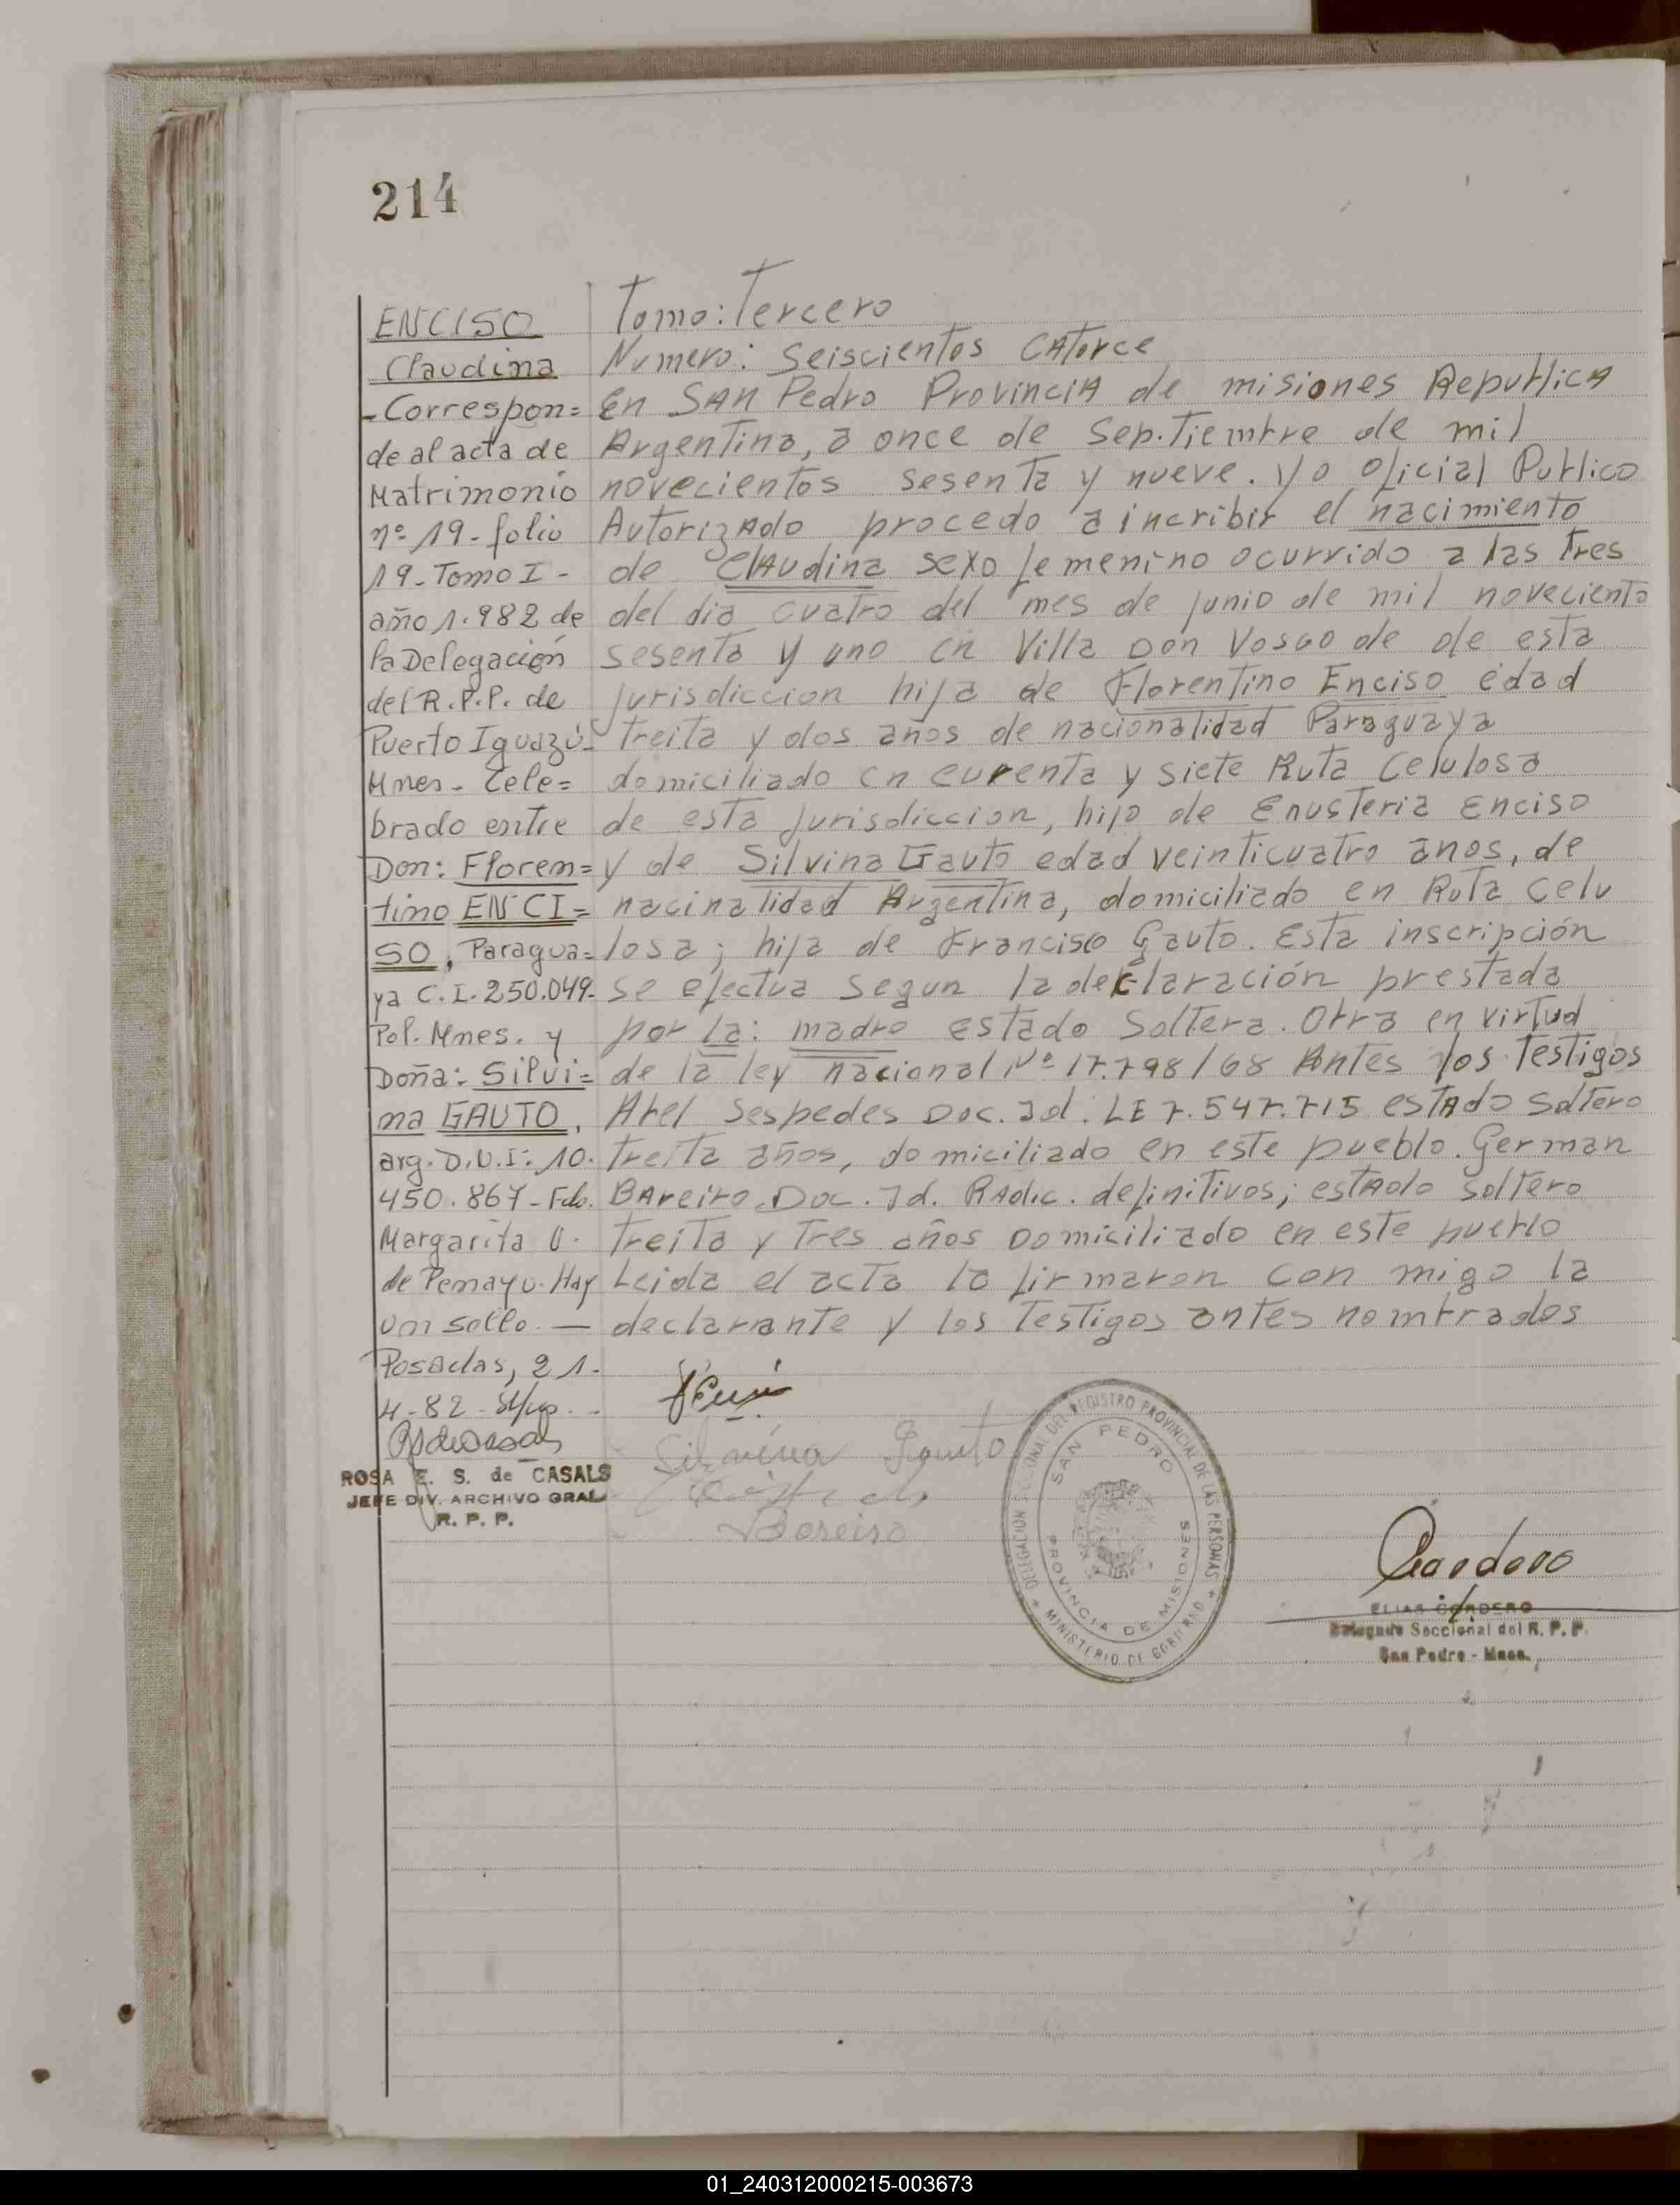 214
ENCISO
Claudina
-Correspon=
de al acta de
Matrimonio
nº 19-folio
19-Tomo I-
año 1.982 de
la Delegación
del R.P.P. de
Puerto Iguazú-
Mnes- Cele=
brado entre
Don: Floren=
tino ENCI=
SO, Paragua=
ya C.I. 250.049-
Pol. Mnes. y
Doña: Silvi=
na GAUTO,
arg. D.U.I: 10.
450.867- Fdo.
Margarita U.
de Pemayu. Hay
un sello. —
Posadas, 21-
4-82
ROSA E. S. de CASALS
JEFE DIV. ARCHIVO GRAL
R. P. P.
Tomo: Tercero
Numero: Seiscientos CATorce
En SAN Pedro ProvinciA de misiones RepublicA
Argentina, a once de Sep.Tiembre de mil
novecientos sesenta y nueve. Yo oficial Publico
AutorizAdo procedo a incribir el nacimiento
de ClAudina sexo femenino ocurrido a las tres
del dia cuatro del mes de junio de mil noveciento
sesenta y uno en Villa Don Vosco de de esta
jurisdiccion hija de Florentino Enciso edad
treita y dos años de nacionalidad Paraguaya
domiciliado en curenta y siete Ruta Celulosa
de esta jurisdiccion, hijo de Enusteria Enciso
y de Silvina Gauto edad veinticuatro anos, de
nacinalidad Argentina, domiciliado en Ruta Celu
losa; hija de Francisco Gauto. Esta inscripción
se efectua segun la declaración prestada
por la: madre estado Soltera. Obra en virtud
de la ley nacional Nº 17.798/68 Antes los Testigos
Abel Sespedes Doc. Id: LE 7.547.715 estAdo Soltero
treita años, domiciliado en este pueblo. German
BAreiro Doc. Id. RAdic. definitivos; estAdo soltero
treita y Tres años Domiciliado en este pueblo
Leida el acta la firmaron con migo la
declarante y los Testigos antes nombrados
Silvina Gauto
Bareiro
DELEGACION SECCIONAL DEL REGISTRO PROVINCIAL DE LAS PERSONAS
SAN PEDRO
PROVINCIA DE MISIONES
MINISTERIO DE GOBIERNO
Cordero
ELIAS CORDERO
Delegado Seccional del R. P. P.
San Pedro - Mnes.
01_240312000215-003673